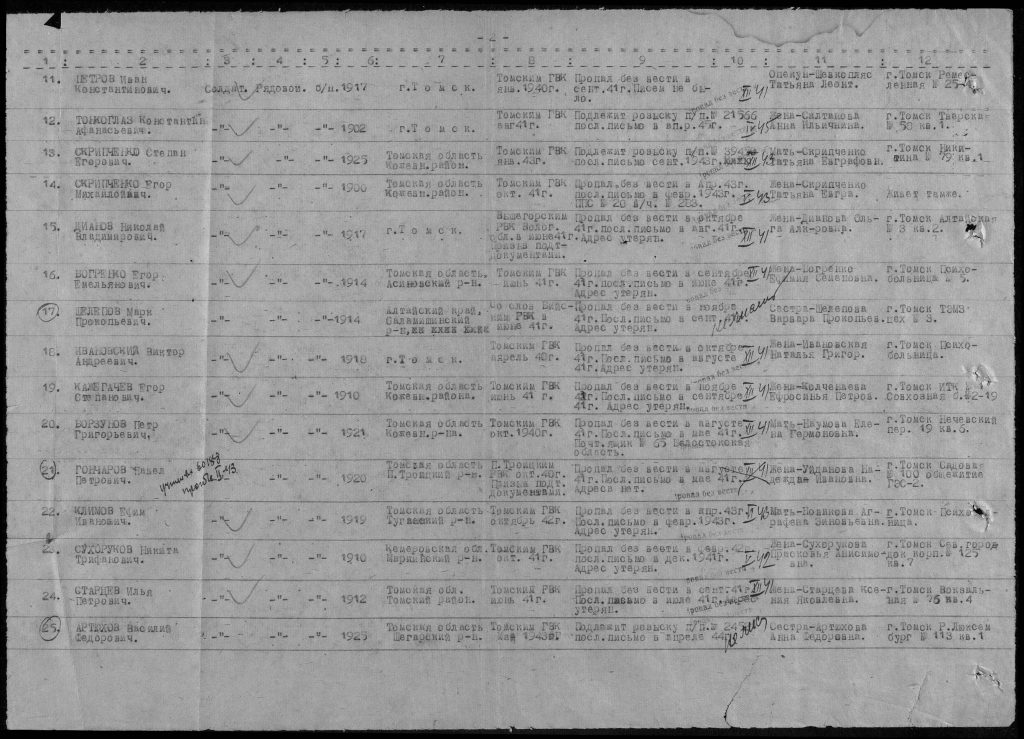 - 2 -
1 : 2 : 3 : 4 : 5 : 6: 7 : 8 : 9 : 10 : 11 : 12
11. ПЕТРОВ Иван Константинович. Солдат. Рядовой. б/п. 1917 г.Томск. Томским ГВК янв.1940г. Пропал без вести в сент.41г.Писем не было. XII 41 Опекун-Шевкопляс Татьяна Леонт. г.Томск
12. ТОНКОГЛАЗ Константин Афанасьевич. -"- -"- -"- 1902 г.Томск. Томским ГВК авг41г. Подлежит розыску п/п.№ 21566 посл.письмо в ап.р.45г. Жена-Салтанова Анна Ильинична. г.Томск Тверская № 58 кв.1.
13. СКРИПЧЕНКО Степан Егорович. -"- -"- -"- 1925 Томская область Кожевн.район. Томским ГВК янв.43г. Подлежит розыску п/п.№ посл.письмо сент.1943г. Мать-Скрипченко Татьяна Евграфовн. г.Томск Никитина № 79 кв.1
14. СКРИПЧЕНКО Егор Михайлович. -"- -"- -"- 1900 Томская область Кожевн.район. Томским ГВК окт. 41г. Пропал без вести в апр.43г. посл.письмо в февр.1943г. ППС № 20 в/ч. № 283. 43 Жена-Скрипченко Татьяна Евгра. Живет тамже.
15. ДИАНОВ Николай Владимирович. -"- -"- -"- 1917 г.Томск. Вышегорским РВК Волог. обл.в июне41г. Призыв подт- документами. Пропал без вести в октябре 41г.посл.письмо в авг.41г. Адрес утерян. XII 41 Жена-Дианова Ольга г.Томск Алтайская № 3 кв.2.
16. ПОГРЕНКО Егор Емельянович. -"- -"- -"- 1914 Томская область. Асиновский р-н. Томским ГВК июнь 41г. Пропал без вести в сентябре 41г.посл.письмо в июне 41г. Адрес утерян. XII 41 Жена-Погренко Ефимия Семеновна. г.Томск Психобольница № 5.
17. ШЕЛЕПОВ Марк Прокопьевич. -"- -"- -"-1914 Алтайский край, р-н, РВК в июне 41г. Пропал без вести в ноябре 41г.Посл.письмо в сент. Адрес утерян. Сестра-Шелепова Варвара Прокопьев. г.Томск ТЭМЗ цех № 3.
18. ИВАНОВСКИЙ Виктор Андреевич. -"- -"- -"- 1918 г.Томск. Томским ГВК апрель 40г. Пропал без вести в октябре 41г.Посл.письмо в августе 41г.Адрес утерян. XII 41 Жена-Ивановская Наталья Григор. г.Томск Психобольница.
19. КАЛЕГАЧЕВ Егор Степанович. -"- -"- -"- 1910 Томская область Кожевн.района. Томским ГВК июнь 41г. Пропал без вести в ноябре 41г.Посл.письмо в сентябре 41г. Адрес утерян. XII 41 Жена-Колченаева Ефросинья Петров. г.Томск ИТК Совхозная б.№2-19
20. БОРЗУНОВ Петр Григорьевич. -"- -"- -"- 1921 Томская область Кожевн.р-на. Томским ГВК окт.1940г. Пропал без вести в августе 41г.Посл.письмо в мае 41г. Почт.ящик № 65 Белостокская область. XII 41 Мать-Наумова Елена Гермоновна. г.Томск Нечевский пер. 19 кв.6.
21. ГОНЧАРОВ Павел Петрович. -"- -"- -"- 1920 Томская область П.Троицкий р-н. П.Троицким РВК окт.40г. Призыв подт. документами. Пропал без вести в августе 41г.Посл.письмо в мае 41г. Адреса нет. Жена-Уйданова Надежда Ивановна. г.Томск Садовая № 100 общежитие ГЭС-2.
22. КЛИМОВ Ефим Иванович. -"- -"- -"- 1919 Томская область Туганский р-н. Томским ГВК октябрь 42г. Пропал без вести в апр.43г. Посл.письмо в февр.1943г. Адрес утерян. 43 Мать-Новикова Аграфена Зиновьевна. г.Томск-Психо
23. СУХОРУКОВ Никита Трифанович. -"- -"- -"- 1910 Кемеровская обл. р-н. Томским ГВК окт. 41г. Пропал без вести в февр.42г. посл.письмо в дек.1941г. Адрес утерян. 42 Жена-Сухорукова Прасковья Анисимовна. г.Томск Сев.городок корп.№ 125 кв.7
24. СТАРЦЕВ Илья Петрович. -"- -"- -"- 1912 Томская обл. Томский район. Томским ГВК июнь 41г. Пропал без вести в сент.41г. Посл.письмо в июле 41г.Адрес утерян. XII 41 Жена-Старцева Ксения Яковлевна. г.Томск Вокзальная № 75 кв.4
25. АРТЮХОВ Василий Федорович. -"- -"- -"- 1925 Томская область Шегарский р-н. Томским ГВК май 1943г. Подлежит розыску п/п.№ посл.письмо в апреле 44г. Сестра-Артюхова Анна Федоровна. г.Томск Р.Люксембург № 113 кв.1